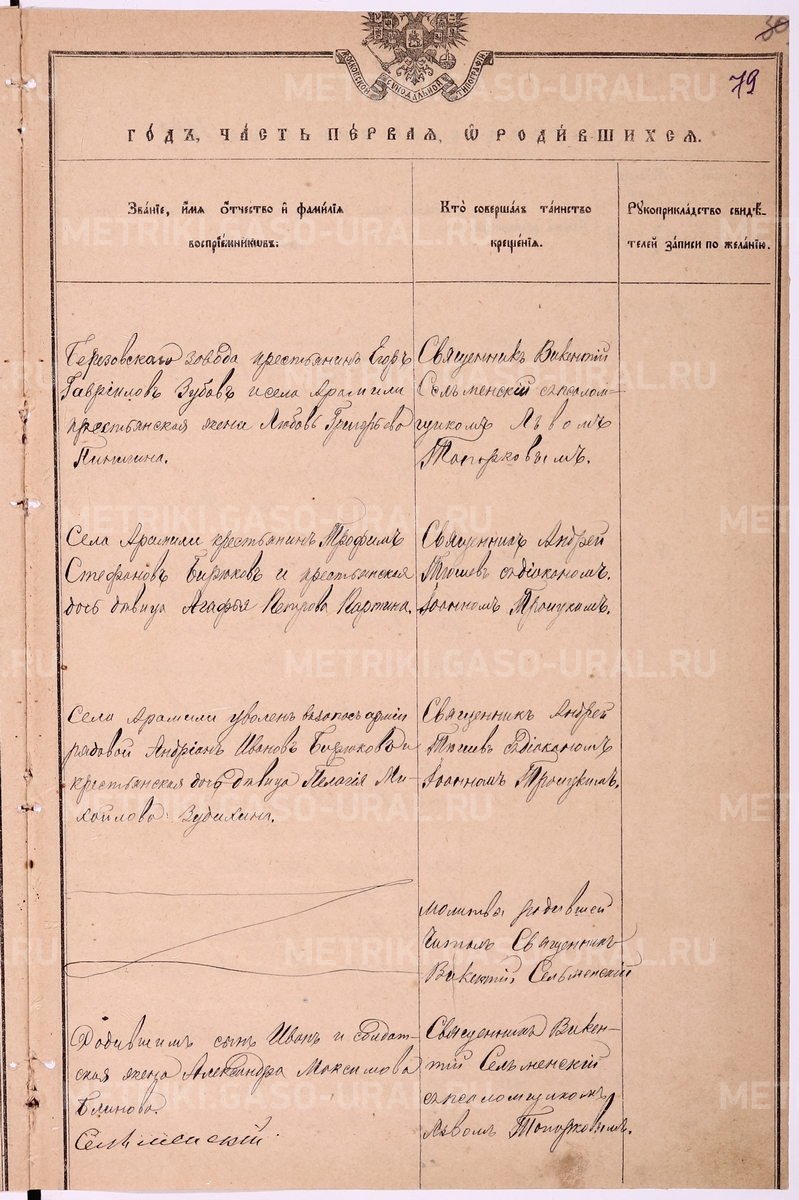 30
79
МОСКОВСКОЙ СѴНОДАЛЬНОЙ ТИПОГРАФІИ
ГО́ДЪ, ЧА́СТЬ ПЕ́РВАЯ, Ѽ РОДИ́ВШИХСѦ.
Зва́нїе, и́мѧ ѻ҆́тчество и҆ фами́лїѧ
воспрїе́мникѡвъ.
Кто̀ соверша́лъ та́инство
креще́нїѧ.
Рꙋкоприкла́дство свидѣ́-
телей за́писи по жела́нїю.
Березовскаго завода крестьянинъ Егоръ
Гавріиловъ Зубовъ и села Арамили
крестьянская жена Любовь Григорьева
Пиньгина.
Священникъ Викентій
Сельменскій съ псалом=
щикомъ Львомъ
Топорковымъ.
Села Арамили крестьянинъ Трофимъ
Стефановъ Бирюковъ и крестьянская
дочь дѣвица Агафья Петрова Портина.
Священникъ Андрей
съ діакономъ
Іоанномъ Троицкимъ.
Села Арамили уволен въ запасъ арміи
рядовой Андріанъ Ивановъ Бирюковъ и
крестьянская дочь дѣвица Пелагія Ми-
хайлова Зудихина.
Священникъ Андрей
съ діакономъ
Іоанномъ Троицкимъ.
Молитва родившей
Читалъ Священникъ
Викентій Сельменскій
Родившимъ сынъ Иванъ и солдат-
ская жена Александра Максимова
Блинова.
Сельменскій.
Священникъ Викен-
тій Сельменскій
съ псаломщикомъ
Львомъ Топорковымъ.
METRIKI.GASO-URAL.RU